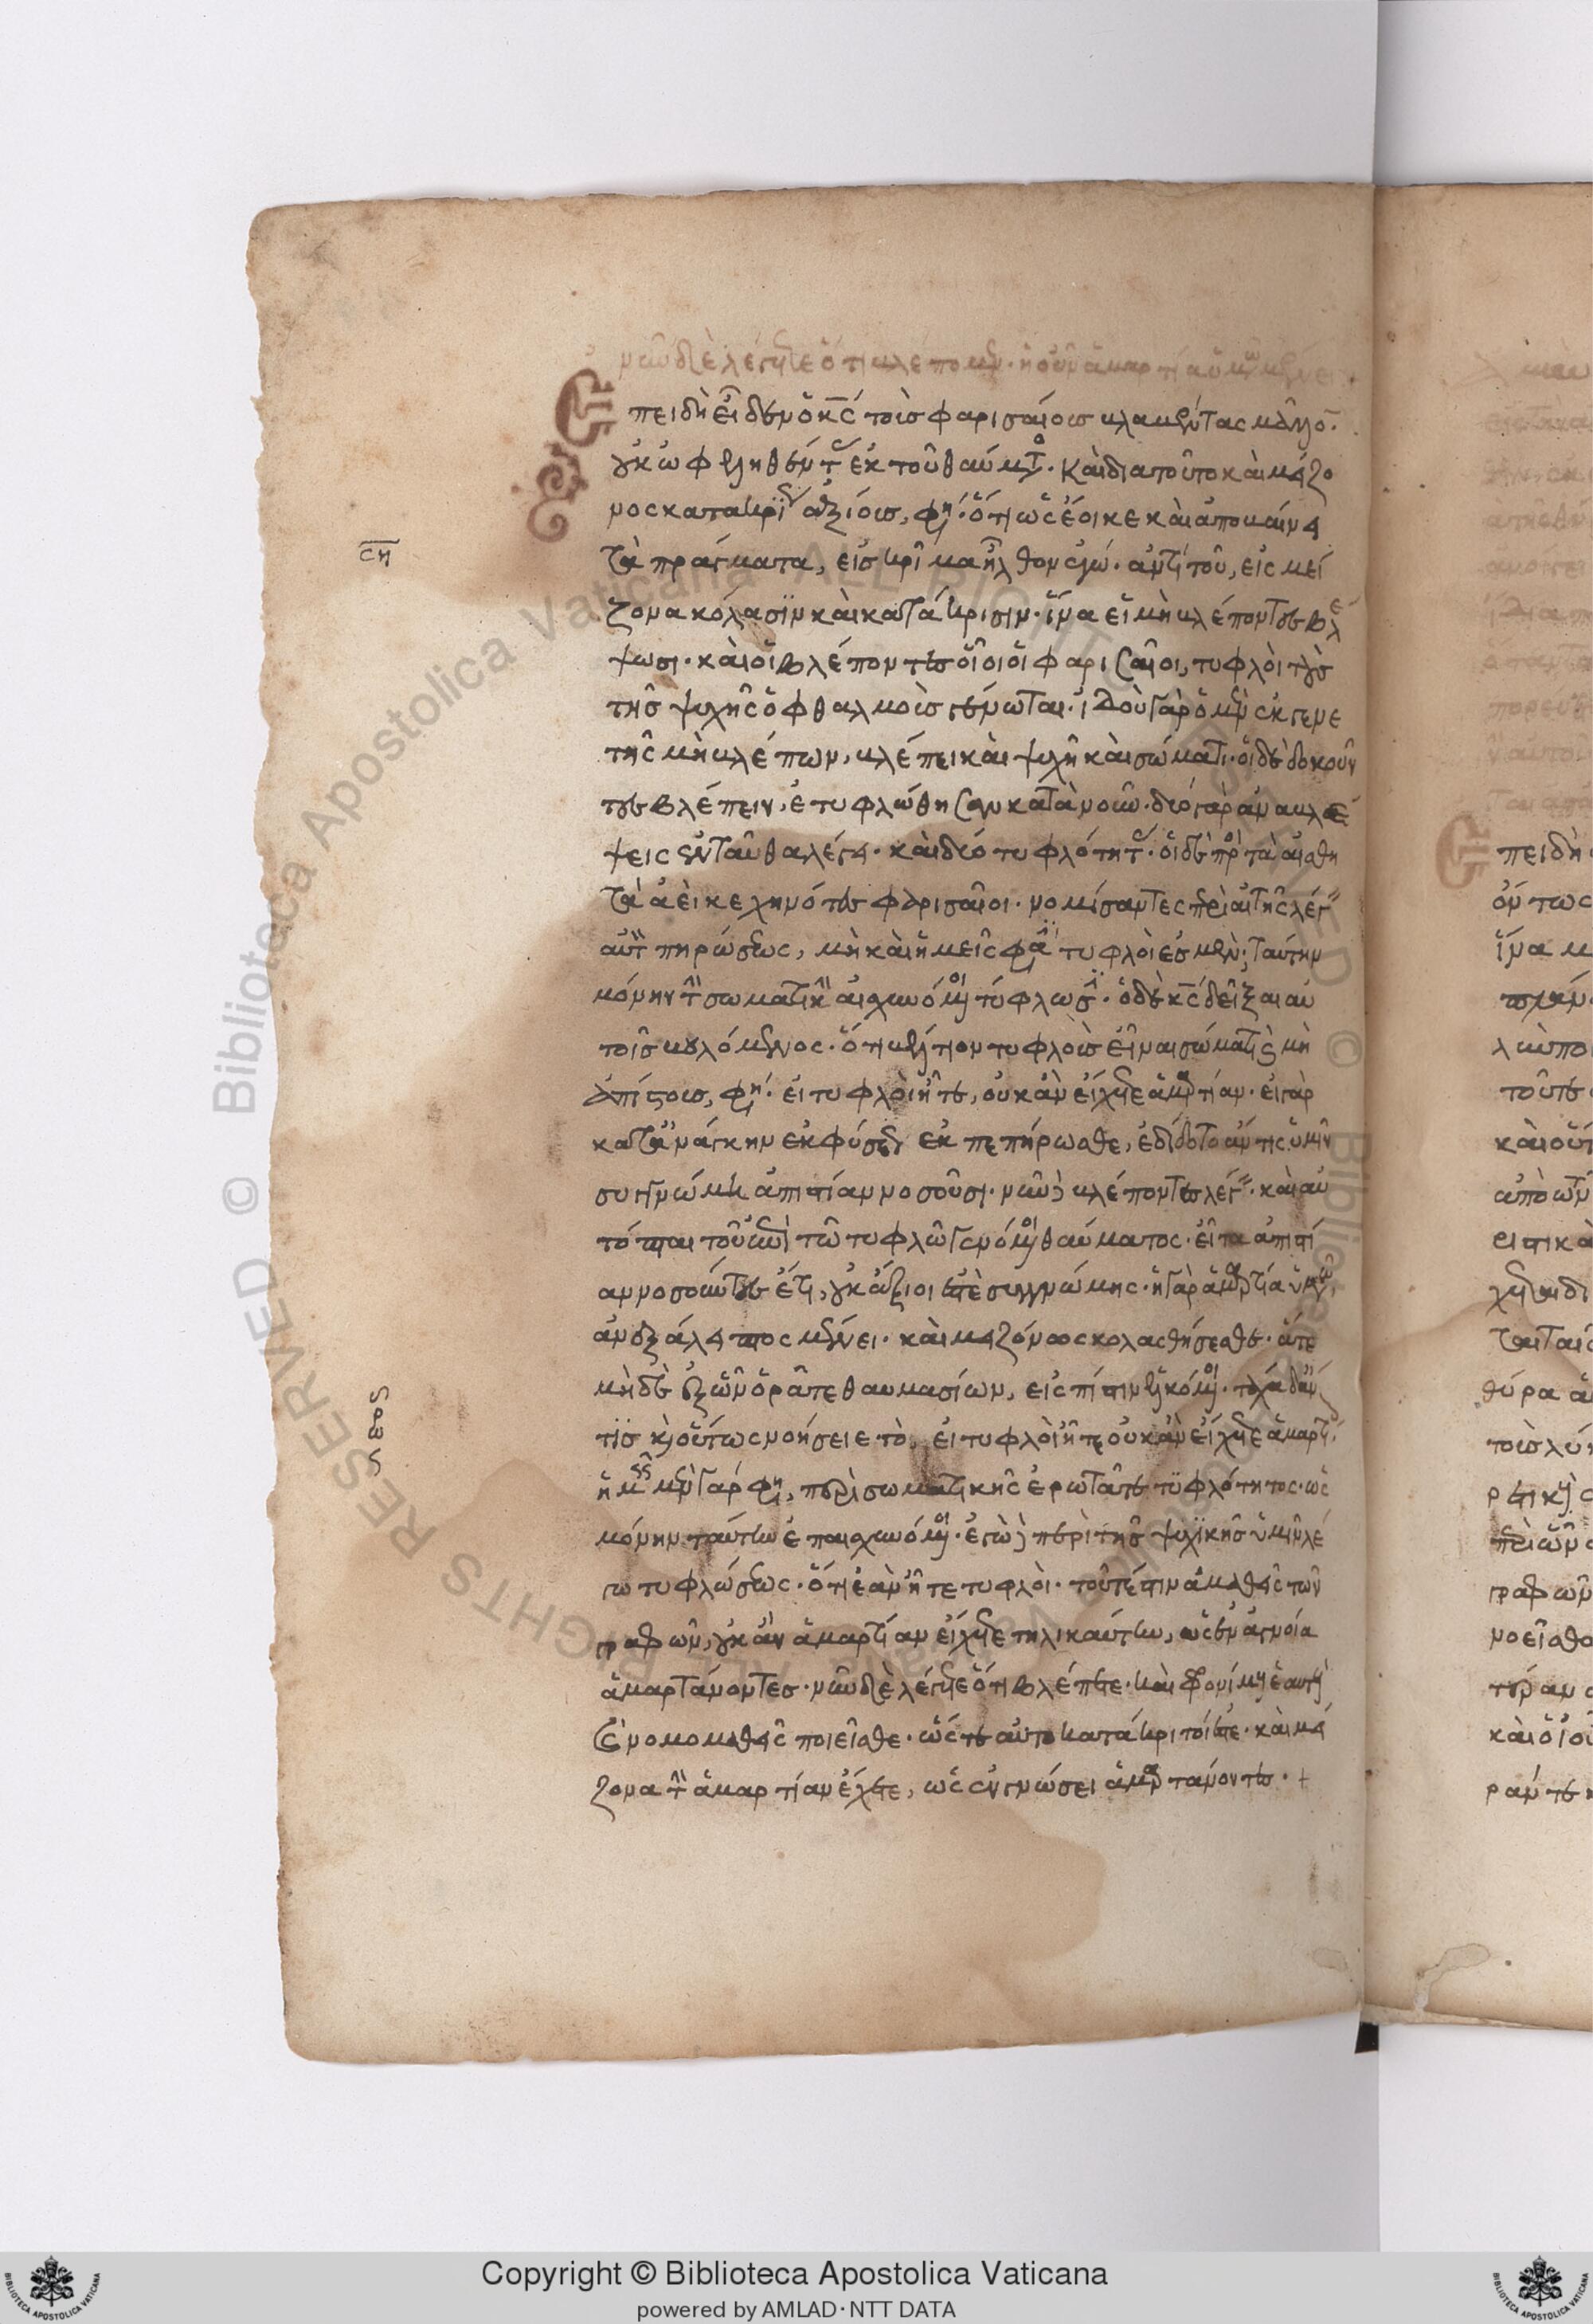 νῦν δὲ λέγετε ὅτι βλέπομεν· ἡ οὖν ἁμαρτία ὑμῶν μένει·
Ἐπειδὴ εἶδεν ὁ κς τοὺς φαρισαίους βλαβέντας μᾶλλον·
οὐκ ὠφεληθέντας ἐκ τοῦ θαύματος· καὶ διατοῦτο καὶ μείζο
νος κατακρίσεως ἀξίους, φησίν· ὅτι ὡς ἔοικε καὶ ἀποβαίνει
τὰ πράγματα, εἰς κρίμα ἦλθον ἐγώ· ἀντὶ τοῦ, εἰς μεί
ζονα κόλασιν καὶ κατάκρισιν· ἵνα οἱ μὴ βλέποντες βλέ
ψωσι· καὶ οἱ βλέποντες οἷοι οἱ φαρισαῖοι, τυφλοὶ τοὺς
τῆς ψυχῆς ὀφθαλμοὺς γένωνται· ἰδοὺ γὰρ ὁ μὲν ἐκ γενε
τῆς μὴ βλέπων, βλέπει καὶ ψυχῇ καὶ σώματι· οἱ δὲ δοκοῦν
τες βλέπειν, ἐτυφλώθησαν κατὰ νοῦν· δύο γὰρ ἀναβλέ
ψεις ἐνταῦθα λέγει· καὶ δύο τυφλότητας· οἱ δὲ πρὸς τὰ αἰσθη
τὰ ἀεὶ κεχηνότες φαρισαῖοι· νομίσαντες περὶ αἰσθητῆς λέγειν
αὐτὸν πηρώσεως, μὴ καὶ ἡμεῖς φασὶ τυφλοὶ ἐσμέν; ταύτην
μόνην τὴν σωματικὴν αἰσχυνόμενοι τύφλωσιν· ὁ δὲ κς δεῖξαι αὐ
τοῖς βουλόμενος· ὅτι βέλτιον τυφλοὺς εἶναι σώματι ἢ μὴ
ἀπίστους, φησίν· εἰ τυφλοὶ ἦτε, οὐκ ἂν εἴχετε ἁμαρτίαν· εἰ γὰρ
κατὰ ἀνάγκην ἐκ φύσεως ἐκπεπήρωσθε, ἐδίδοτο ἄν τις ὑμῖν
συγγνώμη ἀπιστίαν νοσοῦσι· νῦν δὲ βλέποντες λέγετε· καὶ αὐ
τόπται τοῦ ἐπὶ τῷ τυφλῷ γενόμενοι θαύματος· εἶτα ἀπιστί
αν νοσοῦντες ἔτι, οὐκ ἄξιοι ἐστὲ συγγνώμης· ἡ γὰρ ἁμαρτία ὑμῶν,
ἀνεξάλειπτος μένει· καὶ μειζόνως κολασθήσεσθε· ἅτε
μηδὲ ἐξ ὧν ὁρᾶτε θαυμασίων, εἰς πίστιν ἑλκόμενοι· τάχα δ' ἄν
τις καὶ οὕτως νοήσειε τό, εἰ τυφλοὶ ἦτε οὐκ ἂν εἴχετε ἁμαρτίαν·
ὑμεῖς μὲν γὰρ φησι, περὶ σωματικῆς ἐρωτᾶτε τυφλότητος· ὡς
μόνην ταύτην ἐπαισχυνόμενοι· ἐγὼ δὲ περὶ τῆς ψυχικῆς ὑμῖν λέ
γω τυφλώσεως· ὅτι ἐὰν ἦτε τυφλοὶ· τουτέστιν ἀμαθεῖς τῶν
γραφῶν, οὐκ ἂν ἁμαρτίαν εἴχετε τηλικαύτην, ὡς ἐν ἀγνοίᾳ
ἁμαρτάνοντες· νῦν δὲ λέγετε ὅτι βλέπετε· καὶ φρονίμους ἑαυτοὺς
ἐννομομαθεῖς ποιεῖσθε· ὥστε αὐτοκατάκριτοί ἐστε· καὶ μεί
ζονα τὴν ἁμαρτίαν ἔχετε, ὡς ἐν γνώσει ἁμαρτάνοντες· +
ση